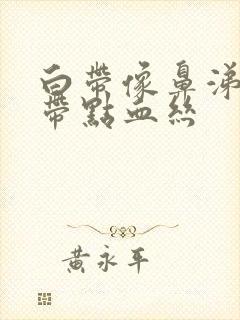 白帶像鼻涕
帶點血絲
黃永平